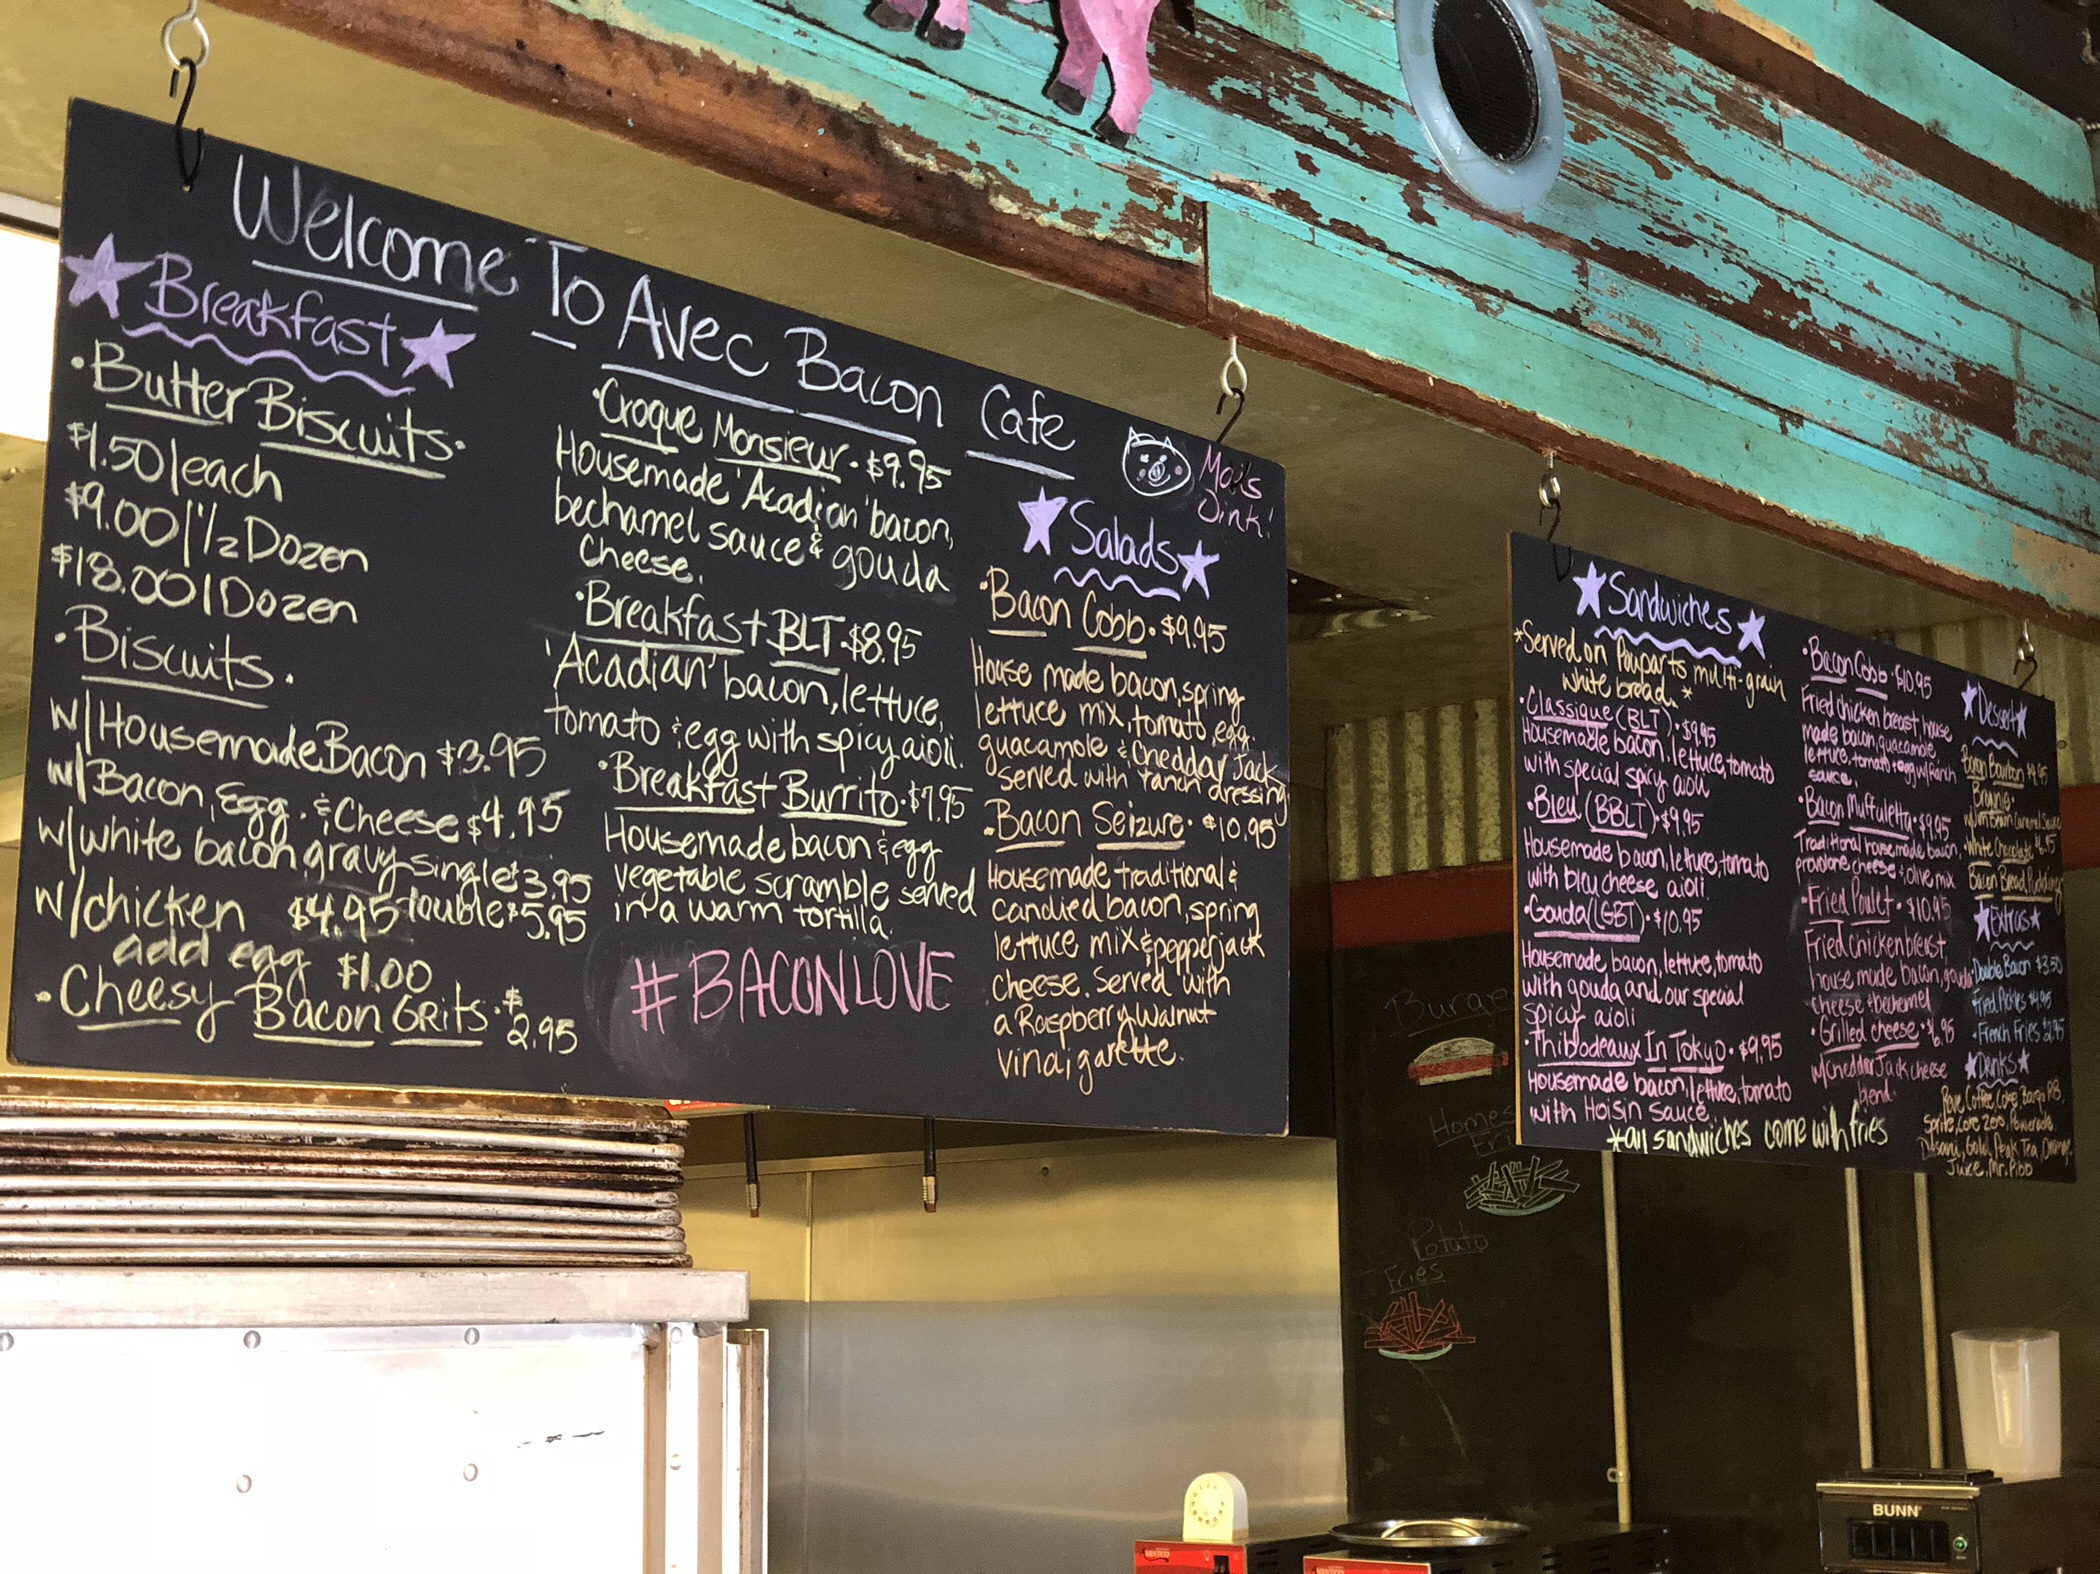 Welcome To Avec Bacon Cafe
Moi's
Oink!
Breakfast
• Butter Biscuits •
$1.50/each
$9.00/½ Dozen
$18.00/Dozen
• Biscuits •
w/Housemade Bacon $3.95
w/Bacon, Egg, & Cheese $4.95
w/white bacon gravy single $3.95
double $5.95
w/chicken $4.95
add egg $1.00
• Cheesy Bacon Grits • $2.95
• Croque Monsieur • $9.95
Housemade 'Acadian' bacon,
bechamel sauce & gouda
cheese.
• Breakfast BLT • $8.95
'Acadian' bacon, lettuce,
tomato & egg with spicy aioli.
• Breakfast Burrito • $7.95
Housemade bacon & egg
vegetable scramble served
in a warm tortilla.
#BACONLOVE
Salads
• Bacon Cobb • $9.95
House made bacon, spring
lettuce mix, tomato, egg,
guacamole & Cheddar Jack
served with ranch dressing
• Bacon Seizure • $10.95
Housemade traditional &
candied bacon, spring
lettuce mix & pepperjack
cheese. Served with
a Raspberry Walnut
vinaigarette.
Sandwiches
*Served on Poupart's multi-grain
white bread.*
• Classique (BLT) • $9.95
Housemade bacon, lettuce, tomato
with special spicy aioli
• Bleu (BBLT) • $9.95
Housemade bacon, lettuce, tomato
with bleu cheese aioli.
• Gouda (GBT) • $10.95
Housemade bacon, lettuce, tomato
with gouda and our special
spicy aioli
• Thibodeaux In Tokyo • $9.95
Housemade bacon, lettuce, tomato
with Hoisin sauce
*all sandwiches come with fries
• Bacon Cobb • $10.95
Fried chicken breast, house
made bacon, guacamole,
lettuce, tomato & egg w/ranch
sauce.
• Bacon Muffuletta • $9.95
Traditional house made bacon,
provolone cheese & olive mix
• Fried Poulet • $10.95
Fried chicken breast,
house made bacon, gouda
cheese & bechemel
• Grilled cheese • $6.95
w/Cheddar Jack cheese
blend.
Dessert
Bacon Bourbon
Brownie
w/Jim Beam Caramel Sauce
White Chocolate
Bacon Bread Pudding
Extras
• Double Bacon $3.50
• Fried Pickles $4.95
• French Fries $2.95
Drinks
Coffee, Coke, Barqs RB,
Sprite, Coke Zero, Powerade,
Dasani, Gold Peak Tea, Orange
Juice, Mr. Pibb
Burge
Homes
Fri
Potato
Fries
BUNN